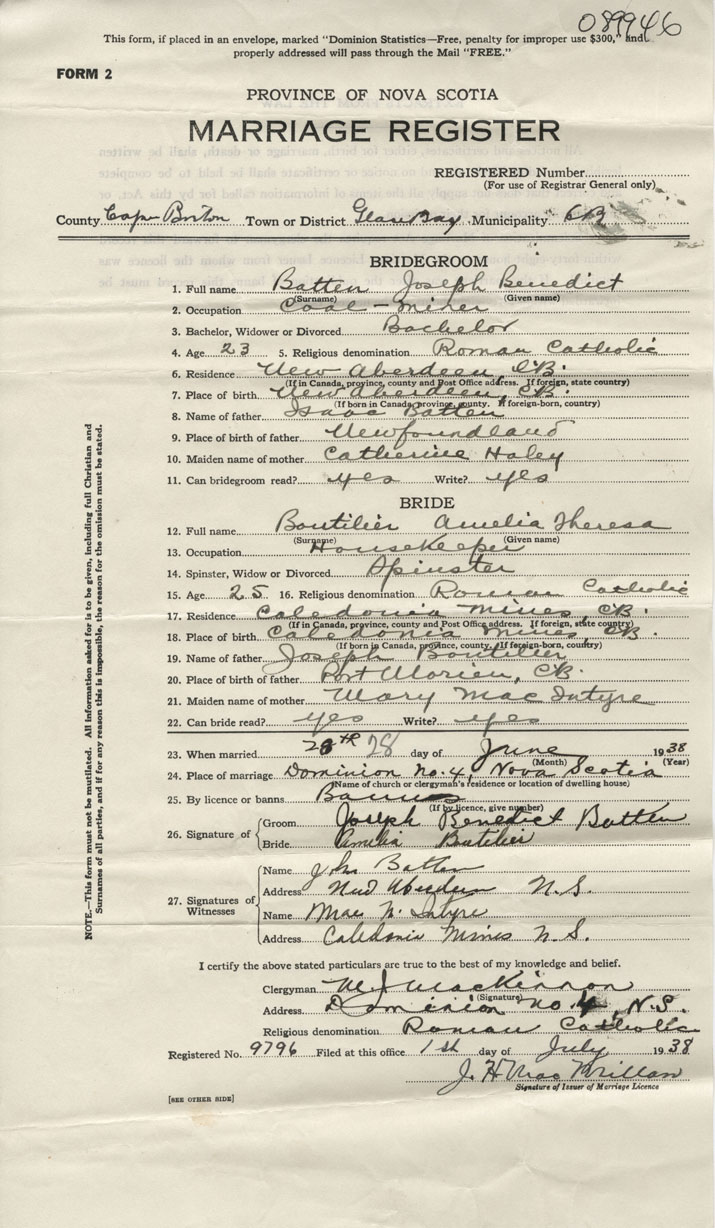 089946
This form, if placed in an envelope, marked "Dominion Statistics—Free, penalty for improper use $300," and
properly addressed will pass through the Mail "FREE."
FORM 2
PROVINCE OF NOVA SCOTIA
MARRIAGE REGISTER
REGISTERED Number
(For use of Registrar General only)
County Cape Breton Town or District Glace Bay Municipality CB
BRIDEGROOM
1. Full name Batten Joseph Benedict
(Surname) (Given name)
2. Occupation Coal - Miner
3. Bachelor, Widower or Divorced Bachelor
4. Age 23 5. Religious denomination Roman Catholic
6. Residence New Aberdeen, CB.
(If in Canada, province, county and Post Office address. If foreign, state country)
7. Place of birth New Aberdeen, CB.
(If born in Canada, province, county. If foreign-born, country)
8. Name of father Isaac Batten
9. Place of birth of father Newfoundland
10. Maiden name of mother Catherine Haley
11. Can bridegroom read? yes Write? yes
BRIDE
12. Full name Boutilier Amelia Theresa
(Surname) (Given name)
13. Occupation Housekeeper
14. Spinster, Widow or Divorced Spinster
15. Age 25 16. Religious denomination Roman Catholic
17. Residence Caledonia Mines, CB.
(If in Canada, province, county and Post Office address. If foreign, state country)
18. Place of birth Caledonia Mines, CB.
(If born in Canada, province, county. If foreign-born, country)
19. Name of father Joseph Boutilier
20. Place of birth of father Port Morien, CB.
21. Maiden name of mother Mary MacIntyre
22. Can bride read? yes Write? yes
23. When married 28th 28 day of June 1938
(Month) (Year)
24. Place of marriage Dominion No. 4, Nova Scotia
(Name of church or clergyman's residence or location of dwelling house)
25. By licence or banns Banns
(If by licence, give number)
26. Signature of Groom Joseph Benedict Batten
Bride Amelia Butilier
27. Signatures of Witnesses Name John Batten
Address New Aberdeen N.S.
Name Mae
Address Caledonia Mines N.S.
I certify the above stated particulars are true to the best of my knowledge and belief.
Clergyman M. J. MacKinnon
(Signature)
Address Dominion No. 4, N.S.
Religious denomination Roman Catholic
Registered No. 9796 Filed at this office 1st day of July 1938
J. H. MacMillan
Signature of Issuer of Marriage Licence
[SEE OTHER SIDE]
NOTE.—This form must not be mutilated. All information asked for is to be given, including full Christian and
Surnames of all parties, and if for any reason this is impossible, the reason for the omission must be stated.